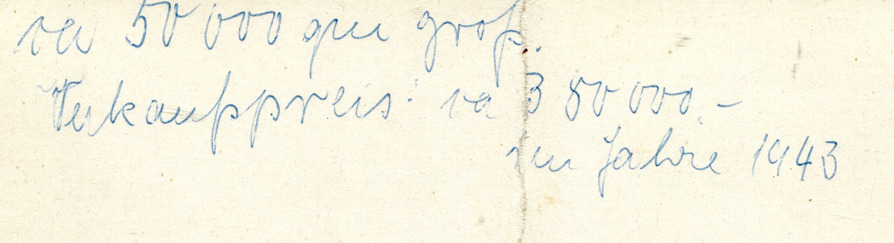 ca 50 000 qm groß.
Verkaufspreis: ca 350 000.-
im Jahre 1943